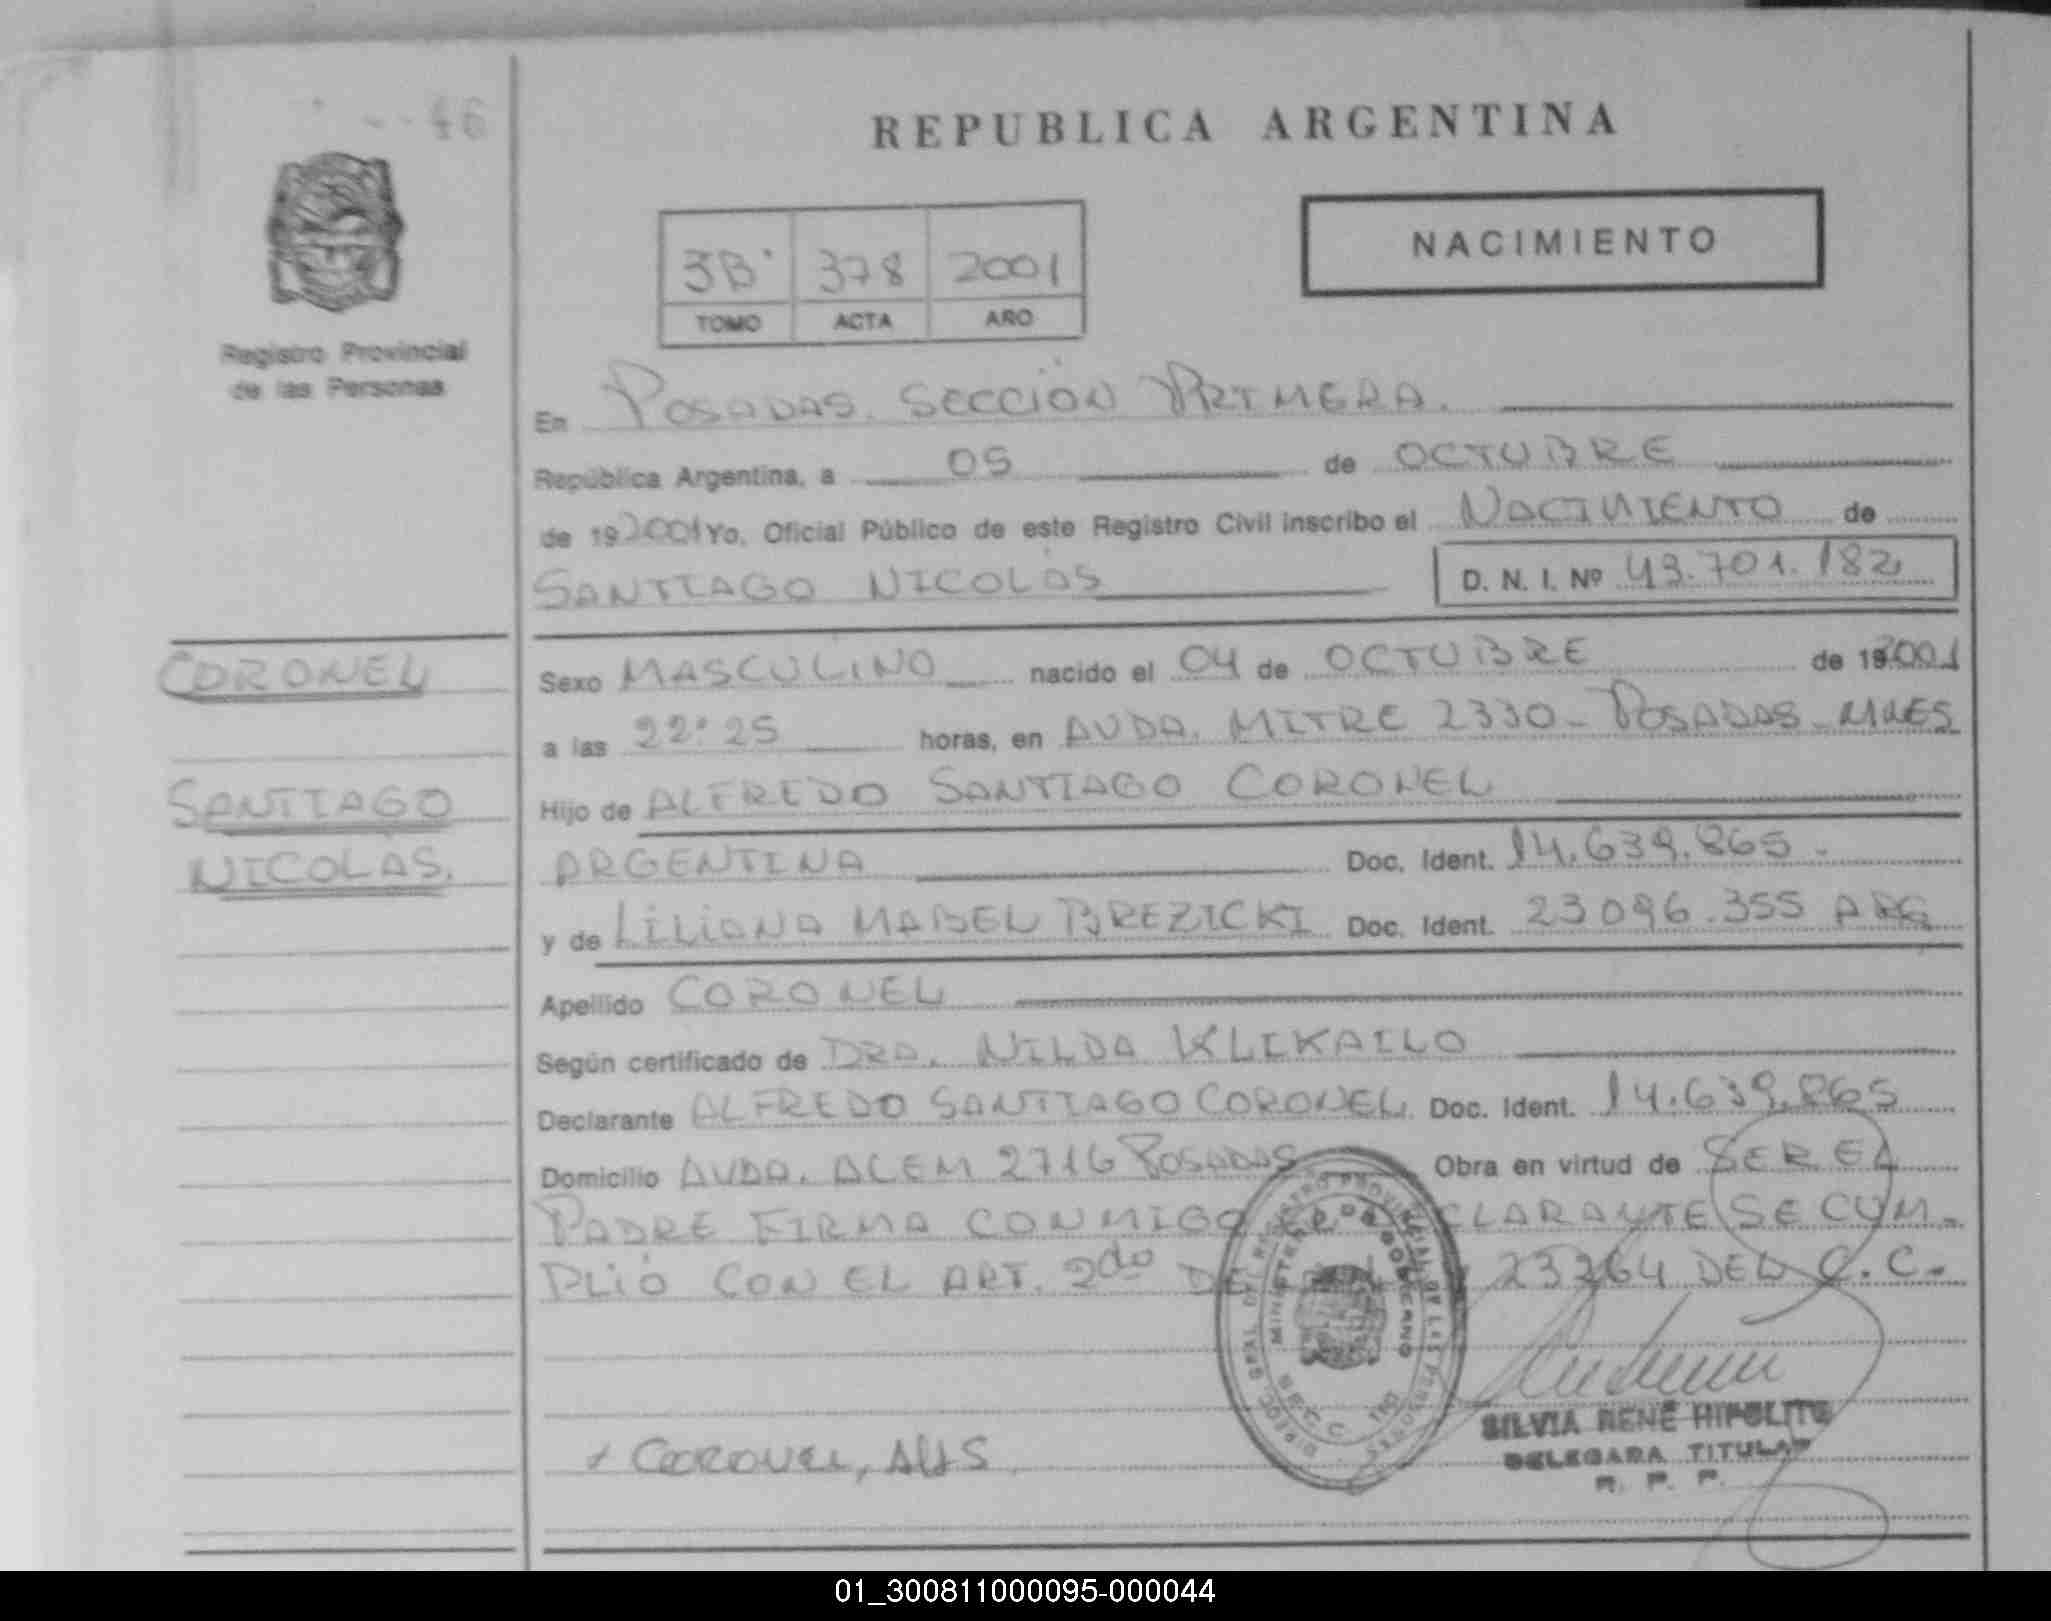 46
REPUBLICA ARGENTINA
NACIMIENTO
3B 378 2001
TOMO ACTA AÑO
Registro Provincial
de las Personas
En POSADAS. SECCIÓN PRIMERA.
República Argentina, a 05 de OCTUBRE
de 192001 Yo, Oficial Público de este Registro Civil inscribo el NACIMIENTO de
SANTIAGO NICOLÁS D. N. I. Nº 43.701.182
CORONEL
SANTIAGO
NICOLÁS.
Sexo MASCULINO nacido el 04 de OCTUBRE de 192001
a las 22:25 horas, en AVDA. MITRE 2330 - POSADAS - MNES
Hijo de ALFREDO SANTIAGO CORONEL
ARGENTINA Doc. Ident. 14.639.865.
y de LILIANA MABEL BREZICKI Doc. Ident. 23096.355 ARG
Apellido CORONEL
Según certificado de DRA. NILDA KLIKAILO
Declarante ALFREDO SANTIAGO CORONEL Doc. Ident. 14.639.865
Domicilio AVDA. ALEM 2716 POSADAS Obra en virtud de SER EL
PADRE FIRMA CONMIGO EL DECLARANTE SE CUM-
PLIÓ CON EL ART. 2do DE 23264 DEL C.C.
CORONEL, A
SILVIA RENÉ HIPOLITO
DELEGADA TITULAR
R. P. P.
01_300811000095-000044